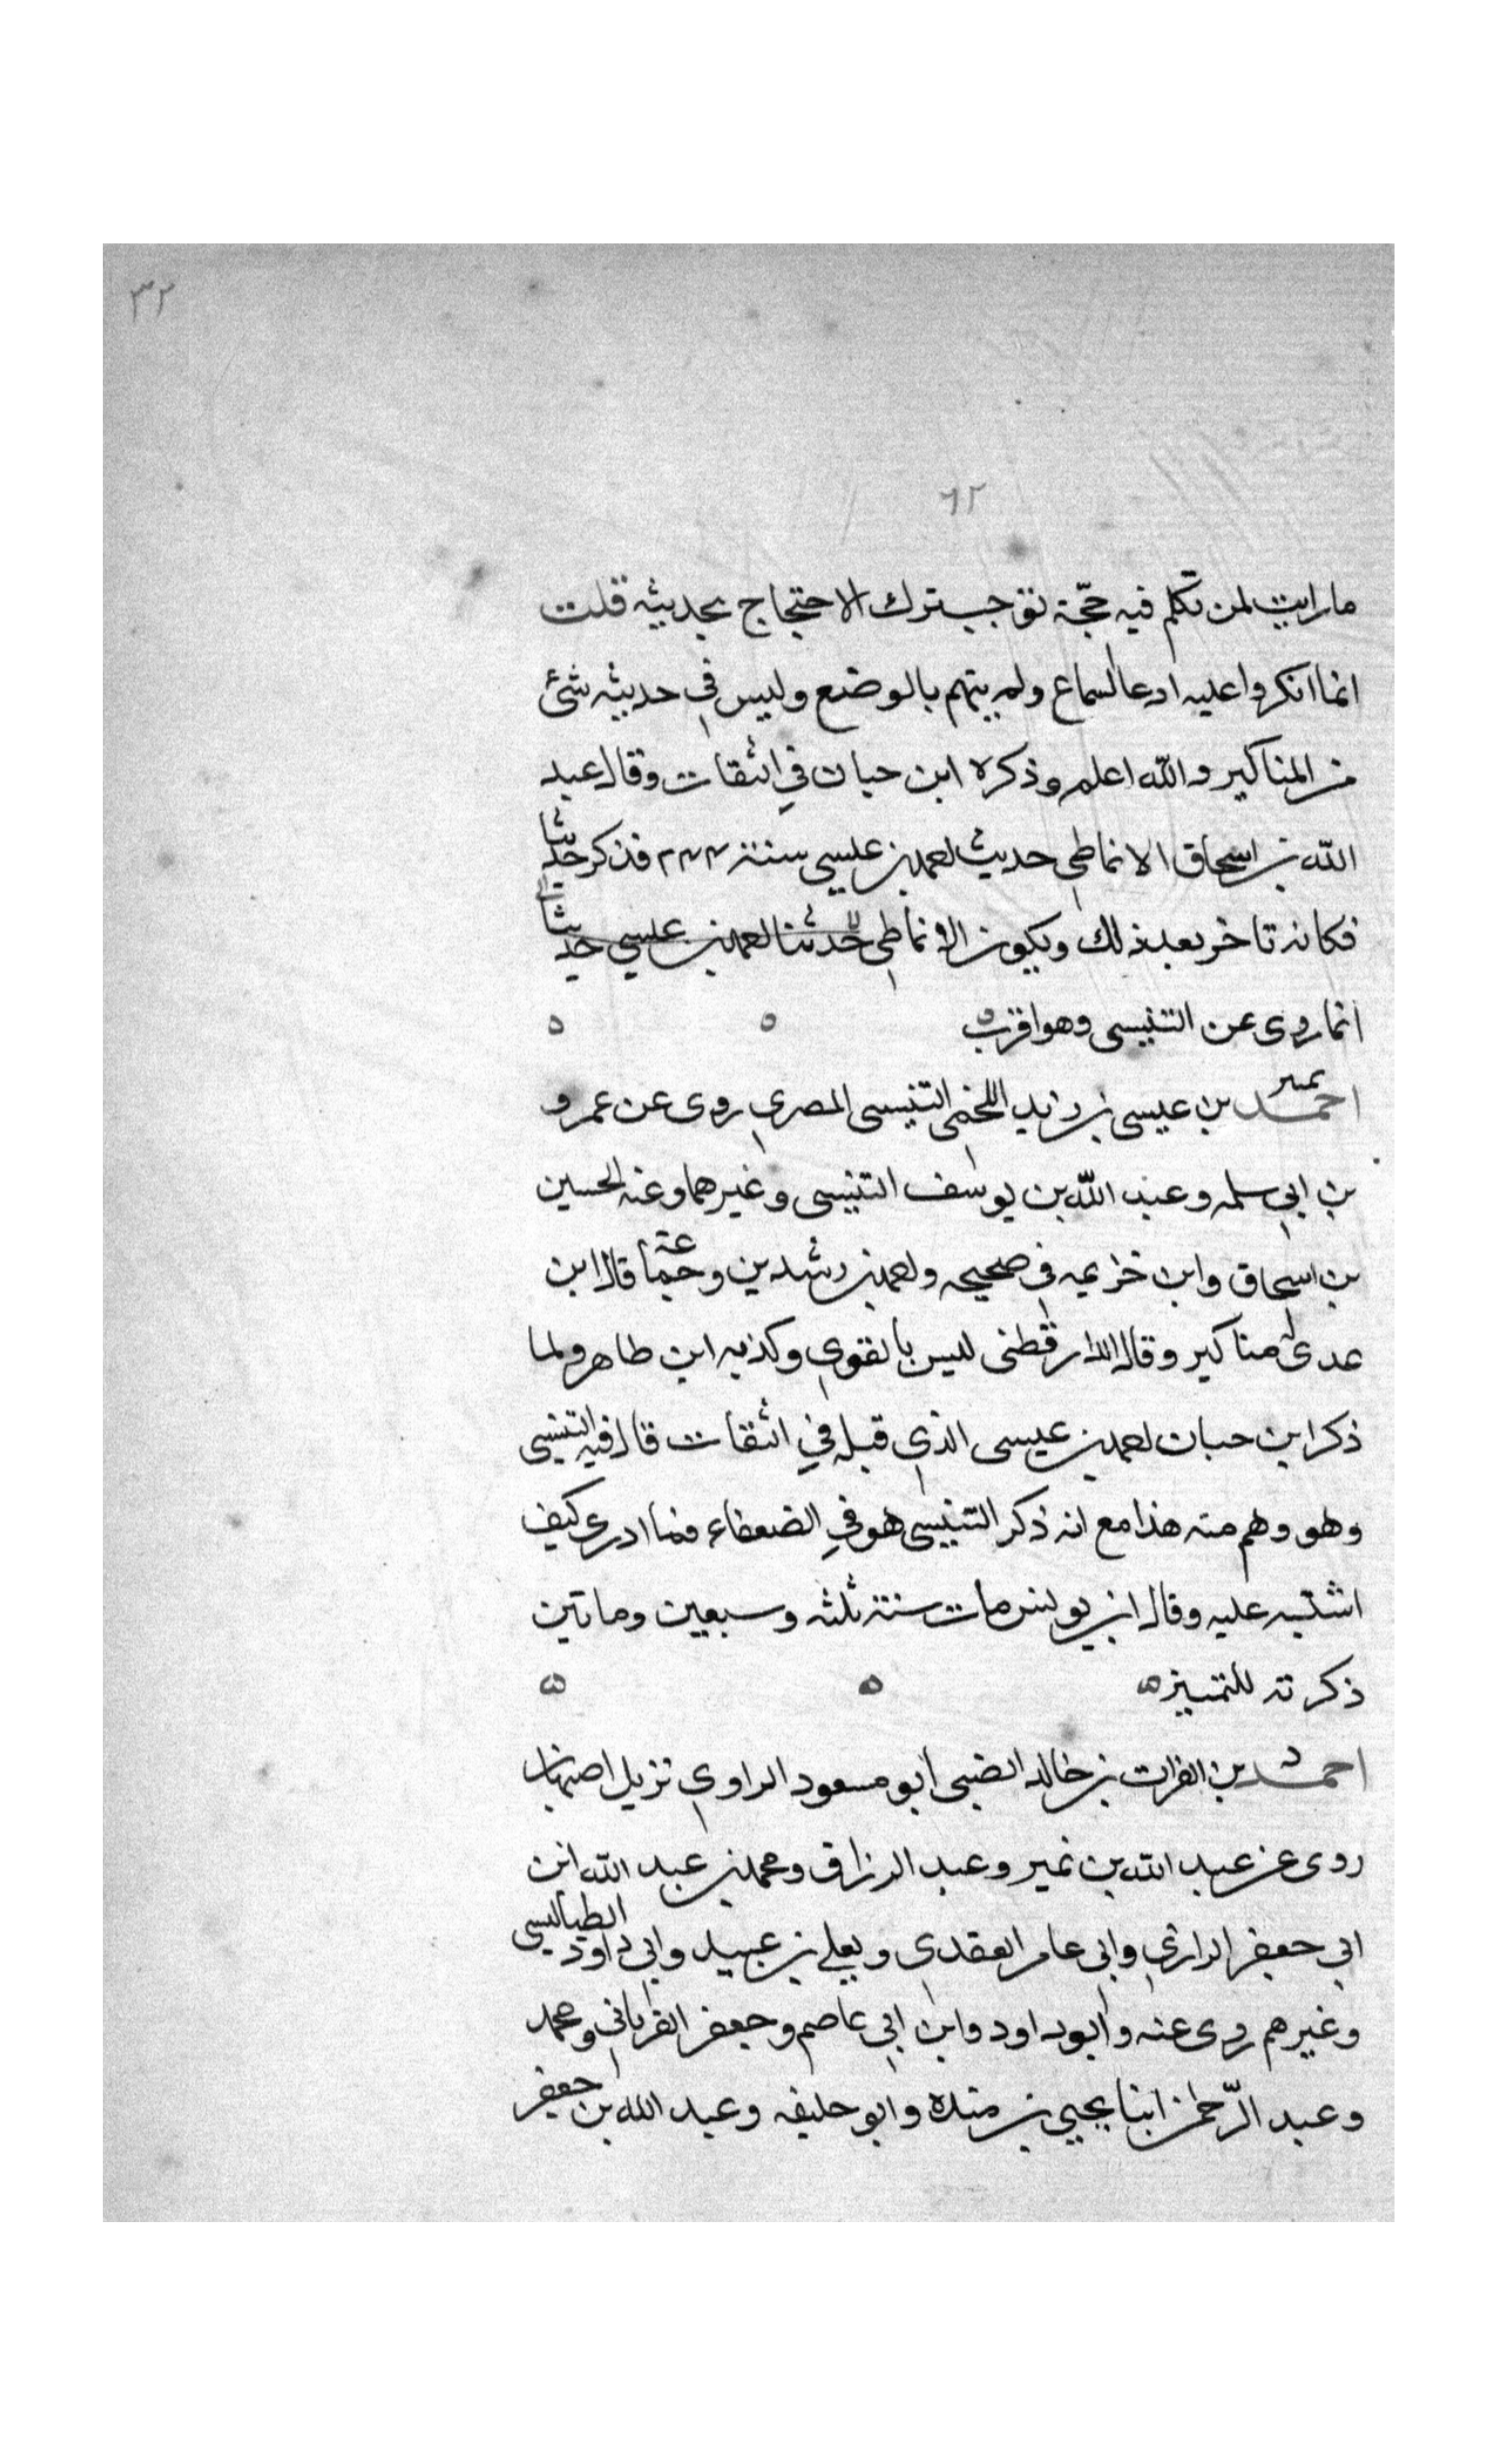 ٣٢
٦٢
ما رايت لمن تكلم فيه حجّة توجب ترك الاحتجاج بحديثه قلت
انما انكروا عليه ادعا السماع ولم يتهم بالوضع وليس في حديثه شئ
من المناكير والله اعلم وذكره ابن حبان في الثقات وقال عبد
الله بن اسحاق الانماطي حديث احمد بن عيسى سنة ٢٤٣ فذكر حديثا
فكانه تاخر بعد ذلك ويكون الانماطي حدثنا احمد بن عيسى حديثا
انما روى عن التنيسى وهو اقرب ٥ ٥
تمييز
احمد بن عيسى بن زيد اللخمى التنيسى المصري روى عن عمرو
بن ابي سلمه وعبد الله بن يوسف التنيسى وغيرهما وعنه الحسين
بن اسحاق وابن خزيمه في صحيحه واحمد بن رشدين وجماعة قال ابن
عدى له مناكير وقال الدارقطنى ليس بالقوي وكذبه ابن طاهر ولما
ذكر ابن حبان احمد بن عيسى الذي قبله في الثقات قال فيه التنيسى
وهو وهم منه هذا مع انه ذكر التنيسى هو في الضعفاء فما ادرى كيف
اشتبه عليه وقال ابن يونس مات سنة ثلثه وسبعين وماتين
ذكرته للتمييز ٥ ٥ ٥
د
احمد بن الفرات بن خالد الضبى ابو مسعود الراوي نزيل اصبهان
روى عن عبد الله بن نمير وعبد الرزاق ومحمد بن عبد الله ابن
ابي جعفر الرازي وابى عامر العقدي ويعلى بن عبيد وابى داود الطيالسي
وغيرهم روى عنه وابوداود وابن ابي عاصم وجعفر الفريابي ومحمد
وعبد الرّحمن ابنا يحيى بن منده وابو خليفه وعبد الله بن جعفر